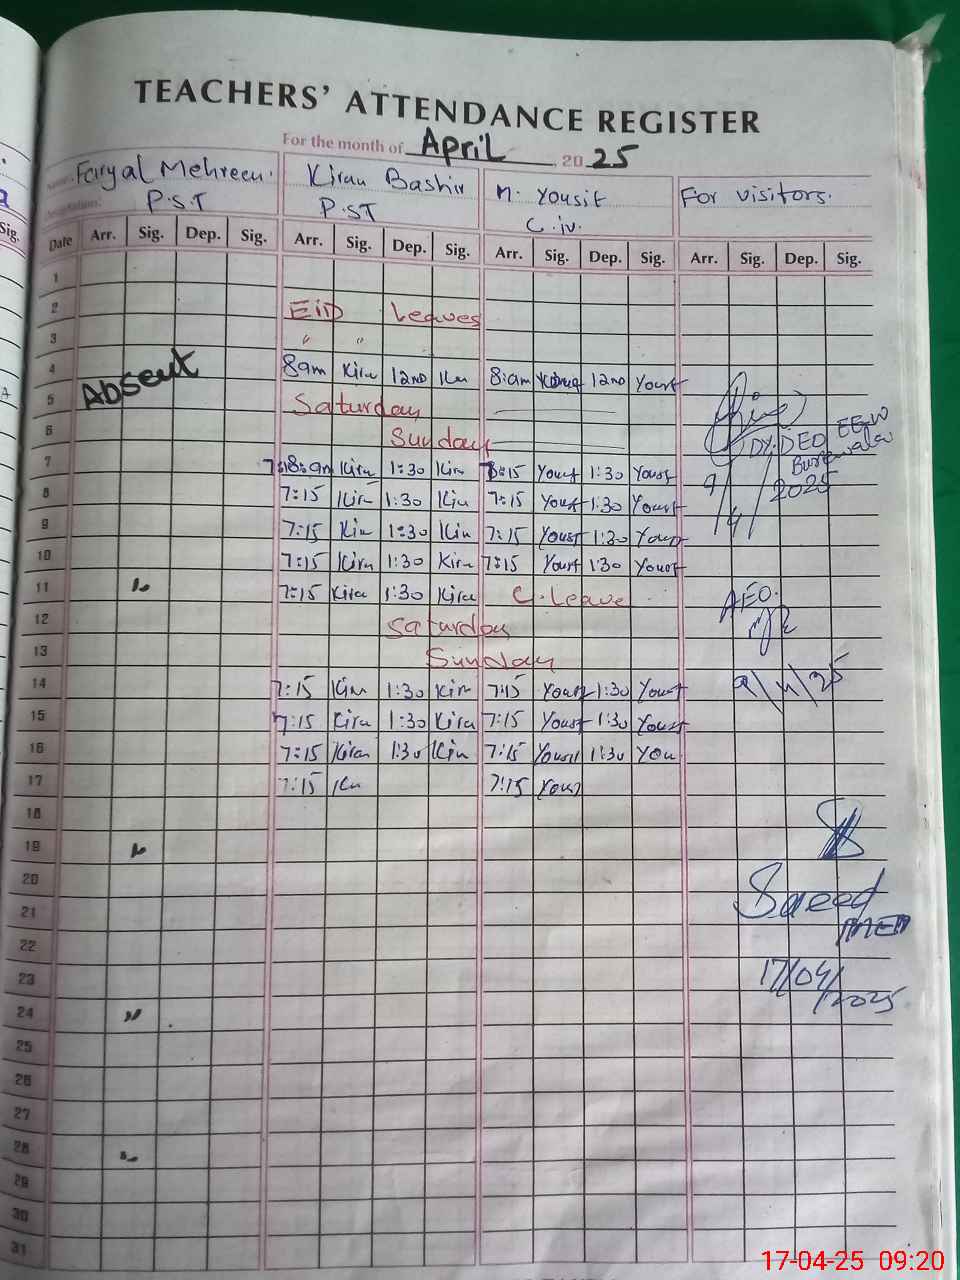 TEACHERS' ATTENDANCE REGISTER
For the month of April, 2025
Name: Faryal Mehreen. Kiran Bashir M. Yousif For visitors.
Designation: P.S.T P.ST C.iv.
Date Arr. Sig. Dep. Sig. Arr. Sig. Dep. Sig. Arr. Sig. Dep. Sig. Arr. Sig. Dep. Sig.
1
2 EiD Leaves
3 " "
4 8am Kiru 12ND Kiu 8:am 12ND Yousf
Absent
5 Saturday
6 Sunday
DY.DEO EE-W
Burewala
7 8:am Kiru 1:30 Kiu 7:15 Yousf 1:30 Yousf
9/4/2025
8 7:15 Kiru 1:30 Kiu 7:15 Yousf 1:30 Yousf
9 7:15 Kiu 1:30 Kiu 7:15 Yousf 1:30 Yousf
10 7:15 Kiru 1:30 Kiru 7:15 Yousf 1:30 Yousf
11 " 7:15 Kiru 1:30 Kiru C.Leave AEO.
12 Saturday
13 Sunday
14 7:15 Kiru 1:30 Kiru 7:15 Yousf 1:30 Yousf 9/4/25
15 7:15 Kiru 1:30 Kiru 7:15 Yousf 1:30 Yousf
16 7:15 Kiru 1:30 Kiu 7:15 Yousf 1:30 You
17 7:15 Kiu 7:15 Yousf
18
19 "
20
Saeed
21
22
23
17/04/2025
24 "
25
26
27
28 "
29
30
31
17-04-25 09:20